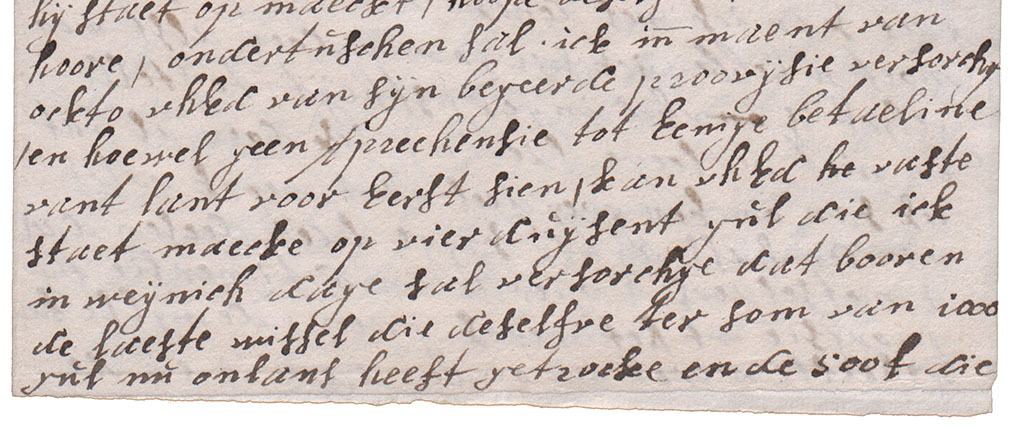 hij staet op maeckt,
hoore, ondertuschen sal ick in maent van
ockto uhEd van sijn begeerde provijsie versorchge
en hoewel geen aprechensie tot eenige betaeline
vant lant voor eerst sien, kan uhEd he vaste
staet maecke op vier duijsent gul die ick
in weijnich dage sal versorchge dat booven
de laeste wissel die deselfve ter som van 1000
gul nu onlans heeft getrocke ende 500 f die